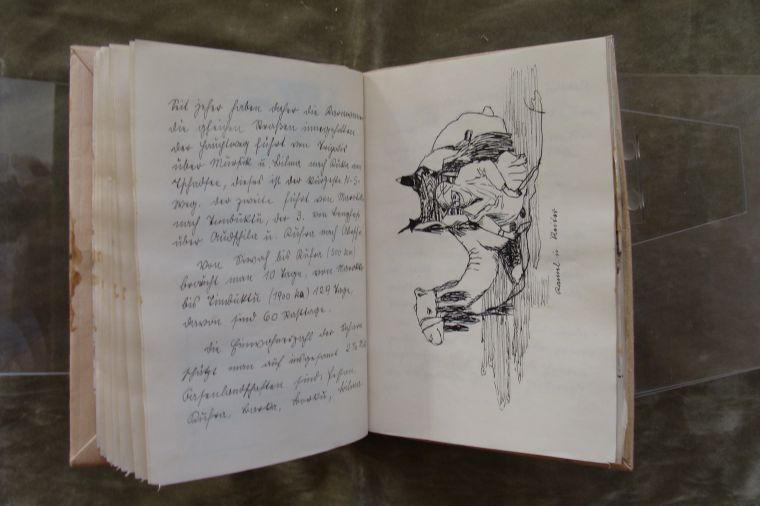 Seit jeher haben daher die Karawanen
die gleichen Straßen innegehalten
der Hauptweg führt von Tripolis
über Mursuk u. Bilma nach Kuka am
Tschadsee, dieses ist der kürzeste N-S-
Weg. der zweite führt von Marokko
nach Timbuktu, der 3. von Benghasi
über Audschila u. Kufra nach
Von bis Kufra (500 km)
braucht man 10 Tage. von Marokko
bis Timbuktu (1900 km) 129 Tage,
davon sind 60 Rasttage.
Die Einwohnerzahl der Sahara
schätzt man auf insgesamt 2 ½
Oasenlandschaften sind: Fessan,
Kufra, Borku, Bilma
Kamel u. Reiter